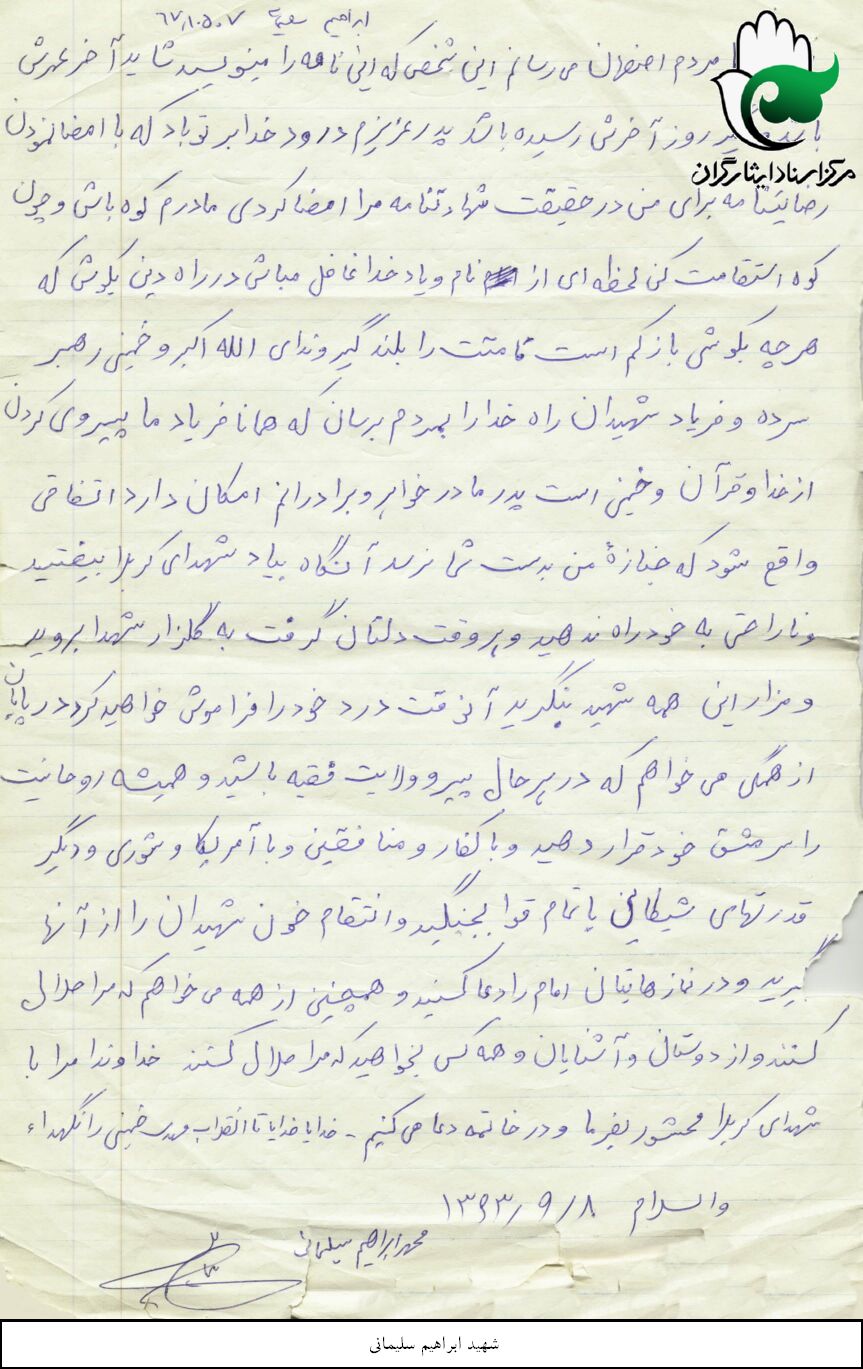 ابراهیم
مردم اصفهان می رسانم این شخص که این نامه را مینویسد شاید آخر عمرش
باشد و روز آخرش رسیده باشد پدر عزیزم درود خدا بر تو باد که با امضا نمودن
مرکز اسناد ایثارگران
رضایتنامه برای من در حقیقت شهادتنامه مرا امضا کردی مادرم کوه باش و چون
کوه استقامت کن لحظه ای از نام و یاد خدا غافل مباش در راه دین بکوش که
هر چه بکوشی باز کم است قامتت را بلند گیر و ندای الله اکبر و خمینی رهبر
سرده و فریاد شهیدان راه خدا را بمردم برسان که همانا فریاد ما پیروی کردن
از خدا و قرآن و خمینی است پدر مادر خواهر و برادرانم امکان دارد اتفاقی
واقع شود که جنازهٔ من بدست شما نرسد آنگاه بیاد شهدای کربلا بیفتید
و ناراحتی به خود راه ندهید و هر وقت دلتان گرفت به گلزار شهدا بروید
و مزار این همه شهید بنگرید آنوقت درد خود را فراموش خواهید کرد در پایان
از همگی می خواهم که در هر حال پیرو ولایت فقیه باشید و همیشه روحانیت
را سر مشق خود قرار دهید و با کفار و منافقین و با آمریکا و شوروی و دیگر
قدرتهای شیطانی با تمام قوا بجنگید و انتقام خون شهیدان را از آنها
گیرید و در نمازهایتان امام را دعا کنید و همچنین از همه می خواهم که مرا حلال
کنند و از دوستان و آشنایان و همه کس بخواهید که مرا حلال کنند خداوندا مرا با
شهدای کربلا محشور بفرما و در خاتمه دعا می کنیم - خدایا خدایا تا انقلاب مهدی خمینی را نگهدار
والسلام ۱۳۶۳/۹/۸
محمد ابراهیم سلیمانی
شهید ابراهیم سلیمانی